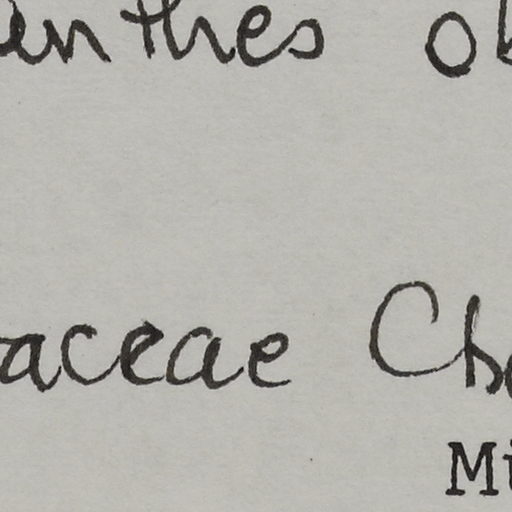 enthes ob
aceae Cha
Mi